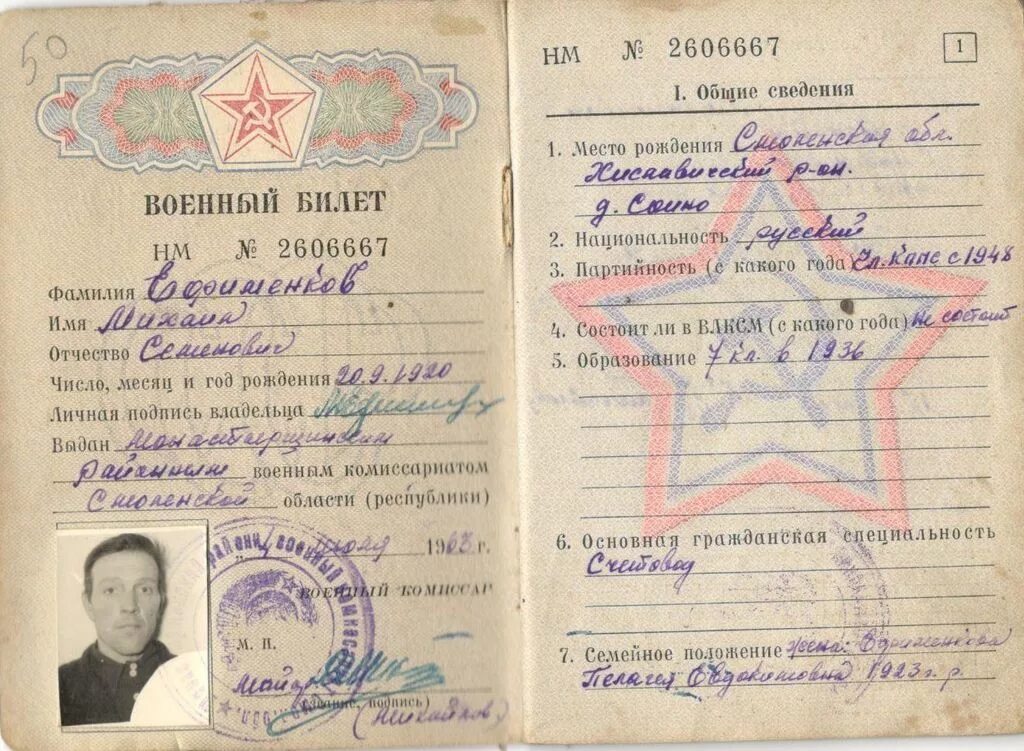 50
ВОЕННЫЙ БИЛЕТ
НМ № 2606667
Фамилия Ефименков
Имя Михаил
Отчество Семенович
Число, месяц и год рождения 20.9.1920
Личная подпись владельца
Выдан Монастырщинским
районным военным комиссариатом
Смоленской области (республики)
июля 1963 г.
ВОЕННЫЙ КОМИССАР
М. П.
Майор
(звание, подпись)
(Михайлов)
НМ № 2606667
1
I. Общие сведения
1. Место рождения Смоленская обл.
Хиславичский р-он.
д. Соино
2. Национальность русский
3. Партийность (с какого года) Чл. КПСС с 1948
4. Состоит ли в ВЛКСМ (с какого года) Не состоит
5. Образование 7 кл. в 1936
6. Основная гражданская специальность
Счетовод
7. Семейное положение жена: Ефименкова
Пелагея Евдокимовна 1923 г. р.